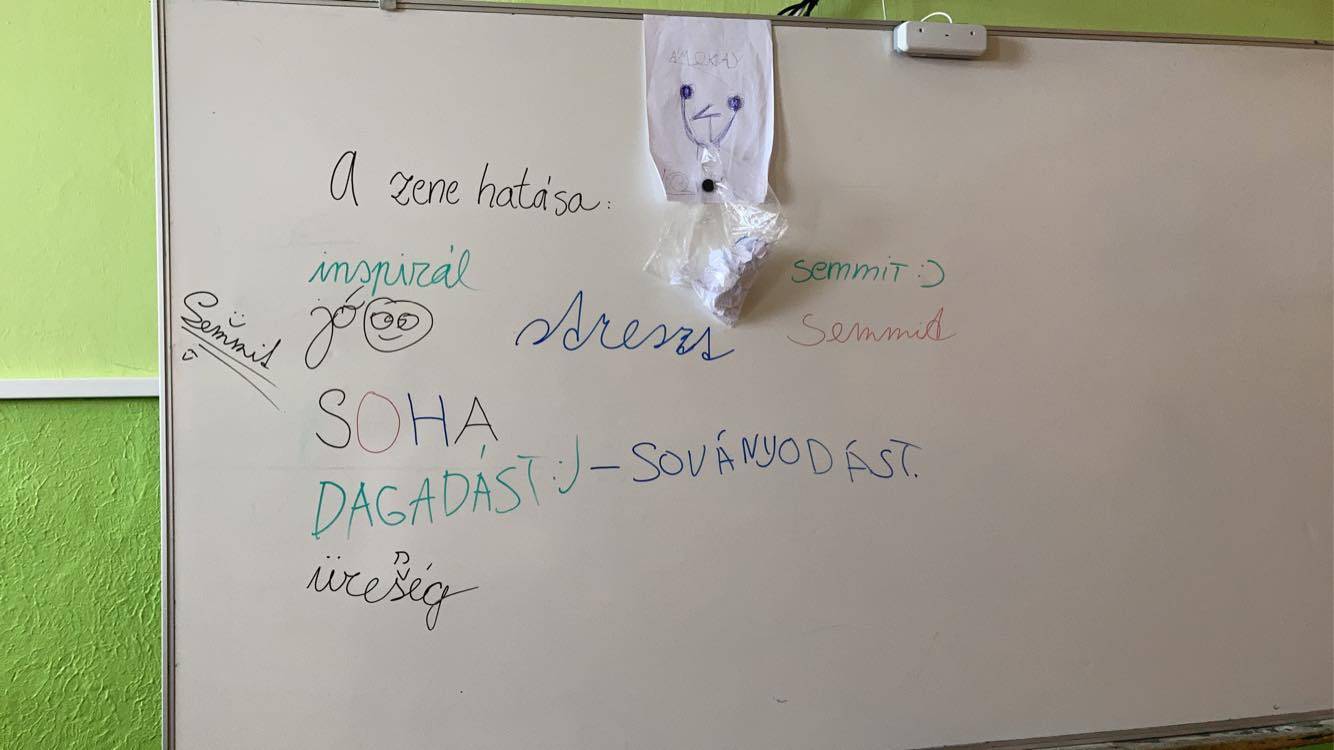 A zene hatása:
inspirál
semmit :)
Semmit
jó
stressz
Semmit
SOHA
DAGADÁST :) – SOVÁNYODÁST.
üresség